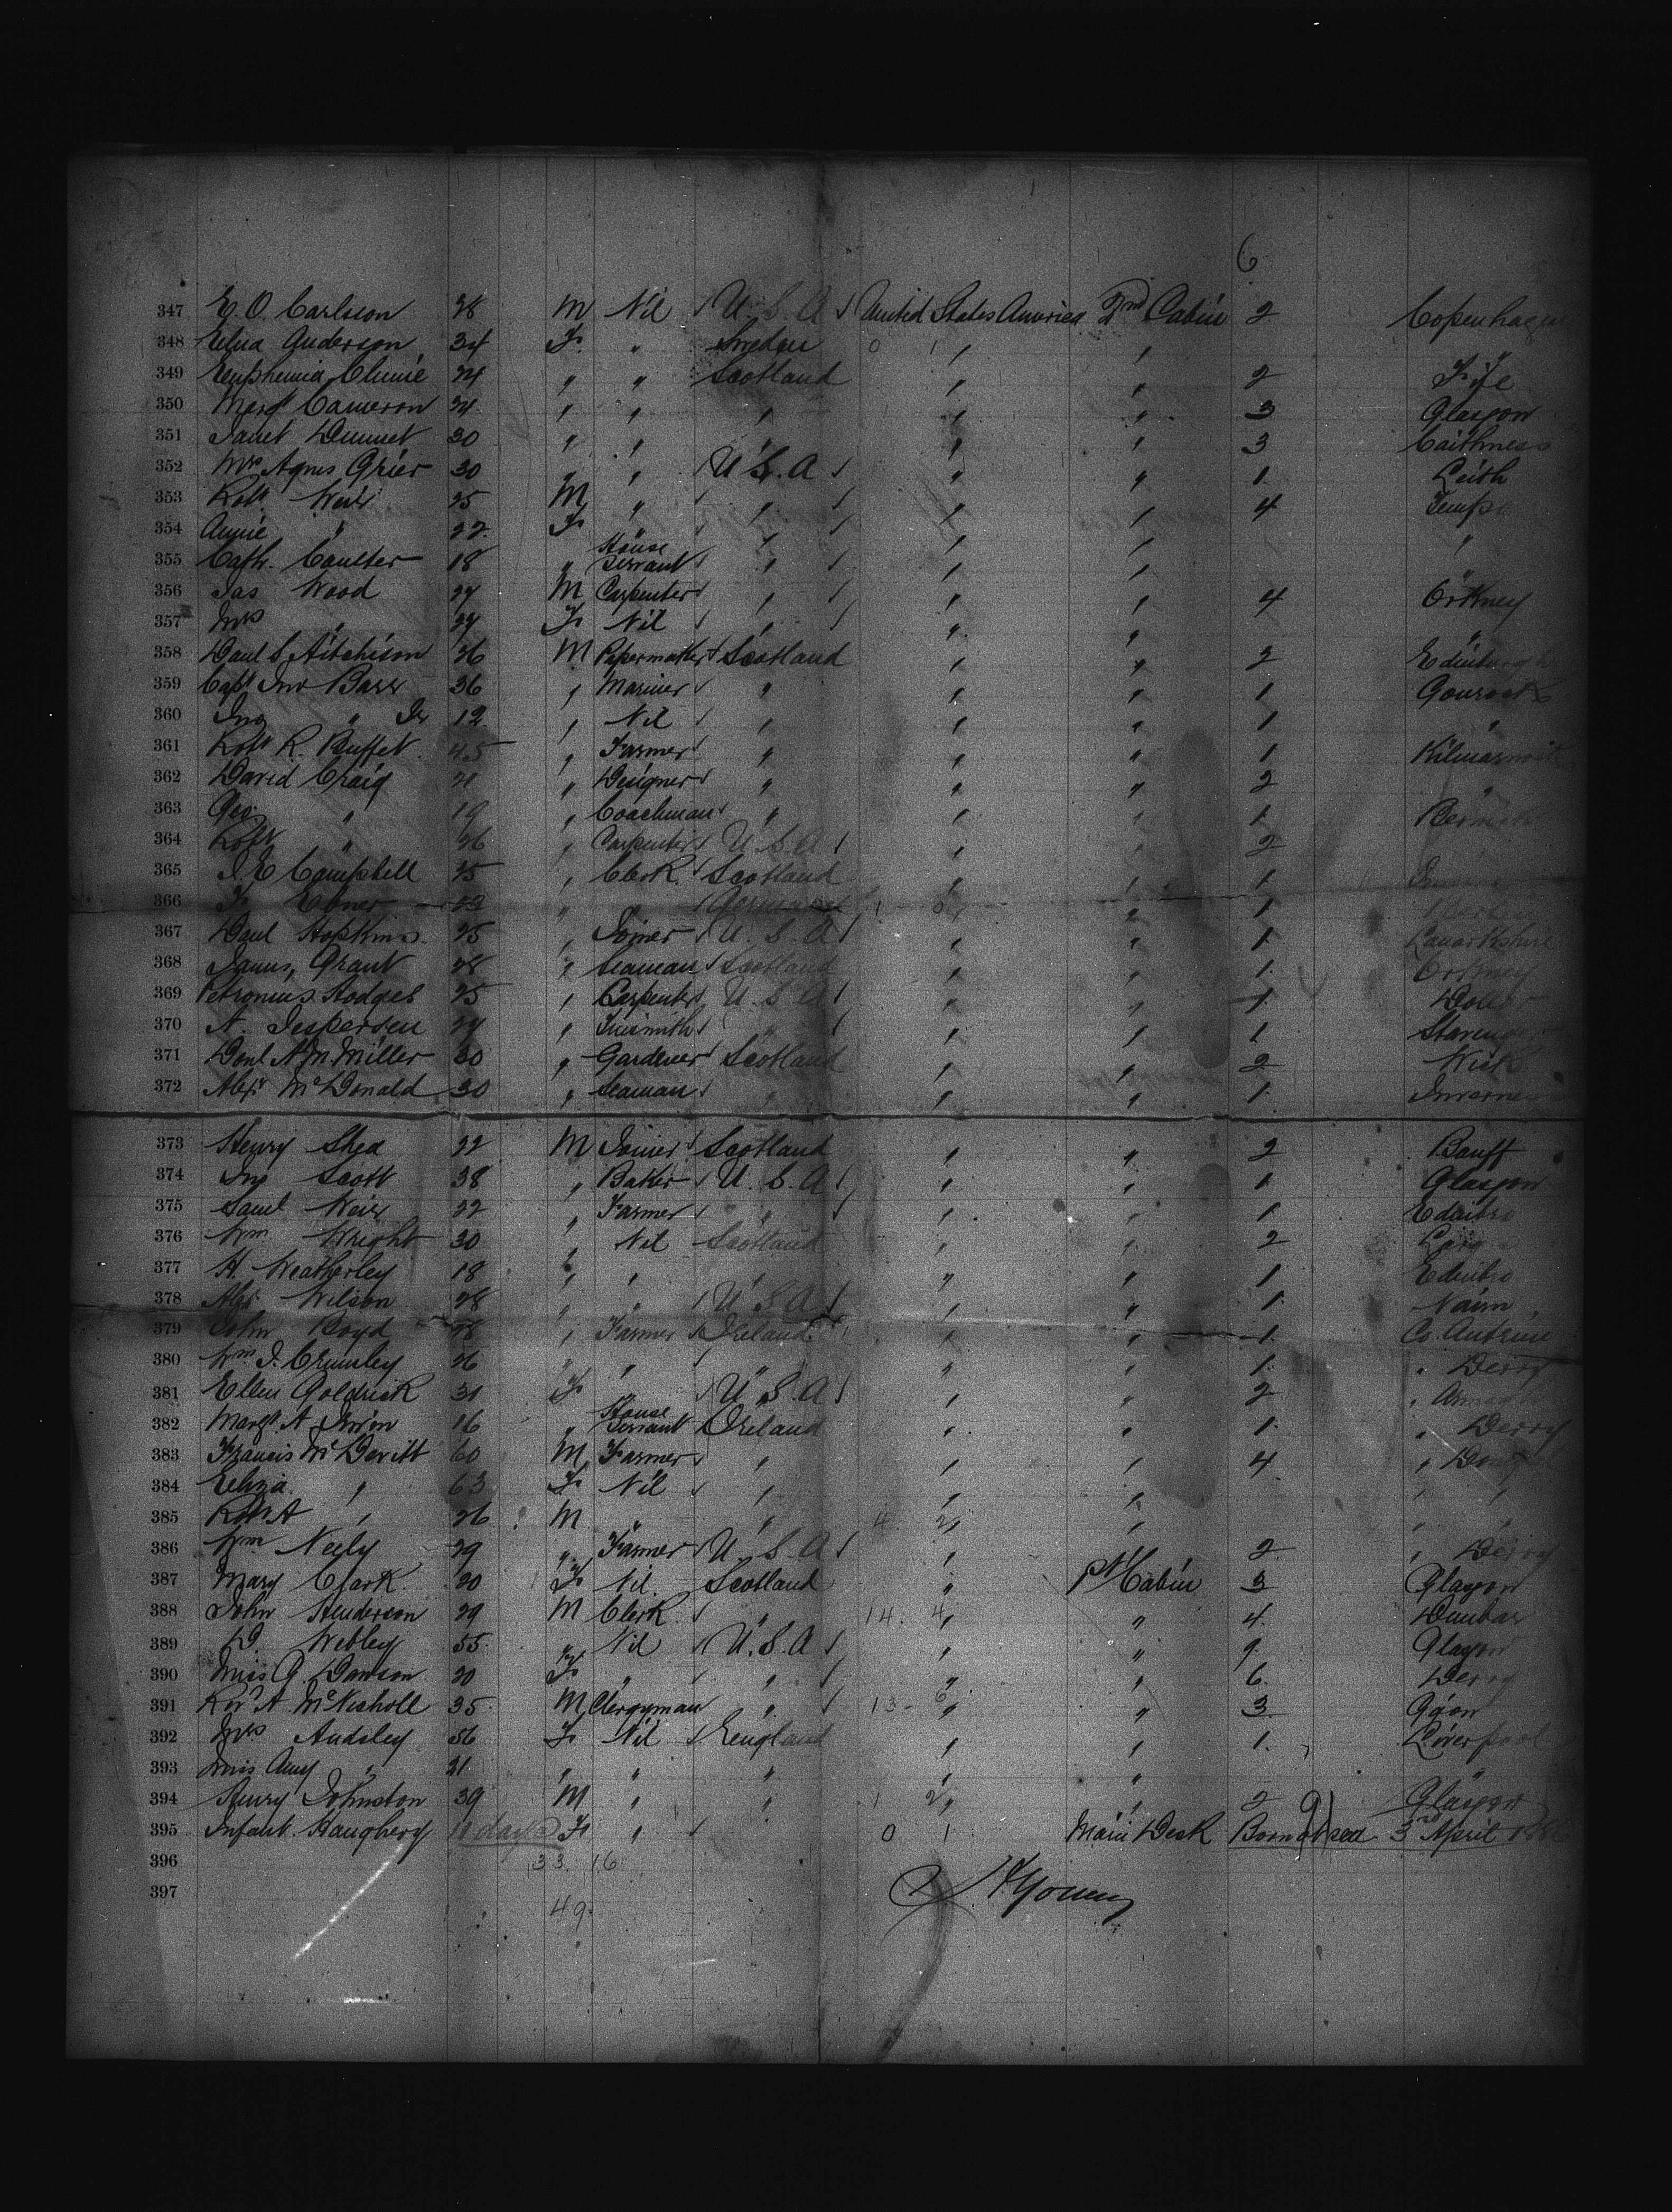 6
347 E. O. Carlsson 28 M Nil U.S.A United States America 2nd Cabin 2 Copenhagen
348 Elna Anderson 34 F. " Sweden 0 1 " "
349 Euphemia Clunie 24 " " Scotland " " 2 Fife
350 Margt Cameron 24 " " " " " 3 Glasgow
351 Janet Dunnet 30 " " " " " 3 Caithness
352 Mrs Agnes Grier 30 " " U.S.A " " 1 Leith
353 Robt Weir 25 M " " " " 4
354 Annie " 22 F " " " " "
355 Cath. Coulter 18 " House Servant " " "
356 Jas Wood 27 M Carpenter " " " 4 Orkney
357 Mrs " 27 F Nil " " " "
358 Danl S. Aitchison 26 M Papermaker Scotland " " 2 Edinburgh
359 Capt Jno Barr 36 " Mariner " " " 1 Gourock
360 Jno " Jr 12 " Nil " " " 1 "
361 Robt R. Buffet 45 " Farmer " " " 1 Kilmarnock
362 David Craig 21 " Designer " " " 2 "
363 Geo. " 19 " Coachman " " " 1
364 Robt " 26 " Carpenter U.S.A " " 2
365 J. E Campbell 25 " Clerk Scotland " " 1
366 F. Ebner 23 " " Germany 1 0 " " 1
367 Danl Hopkins 25 " Joiner U.S.A " " 1 Lanarkshire
368 James Grant 28 " Seaman Scotland " " 1 Orkney
369 Petronius Hodges 25 " Carpenter U.S.A " " 1
370 N. Jespersen 27 " Tinsmith " " " 1 Stavenger
371 Donl A. M. Miller 30 " Gardener Scotland " " 2 Wick
372 Alexr McDonald 30 " Seaman " " " 1 Inverness
373 Henry Shea 22 M Joiner Scotland " " 2 Banff
374 Jno Scott 38 " Baker U.S.A " " 1 Glasgow
375 Saml Weir 22 " Farmer " " " 1 Edinbro
376 Wm Wright 30 " Nil Scotland " " 2
377 H. Weatherley 18 " " " " " 1 Edinbro
378 Alex Wilson 28 " " U.S.A " " 1 Nairn
379 John Boyd 28 " Farmer Ireland " " 1 Co. Antrim
380 Wm J. Crumley 26 " " " " " 1 " Derry
381 Ellen Goldrick 31 F " U.S.A " " 2 "
382 Margt A. Irwin 16 " House Servant Ireland " " 1 " Derry
383 Francis McDevitt 60 M Farmer " " " 4 "
384 Eliza " 63 F Nil " " " " "
385 Robt A " 26 M " " 4 2 " " " "
386 Wm Neely 29 " Farmer U.S.A " " 2 " Derry
387 Mary Clark 20 F Nil Scotland " 1st Cabin 3 Glasgow
388 John Henderson 29 M Clerk " 14 4 " " 4 Dunbar
389 D. Webley 55 " Nil U.S.A " " 9 Glasgow
390 Miss G. Dawson 20 F " " " " 6 Derry
391 Revd A McNicholl 35 M Clergyman " 13 - 6 " " 3
392 Mrs Audsley 56 F Nil England " " 1 Liverpool
393 Miss Amy " 21 " " " " " "
394 Henry Johnston 39 M " " 1 2 " " 2 Glasgow
395 Infant Haughery 11 days F " " 0 1 Main Deck Born at sea 3rd April
396 33. 16
397
49